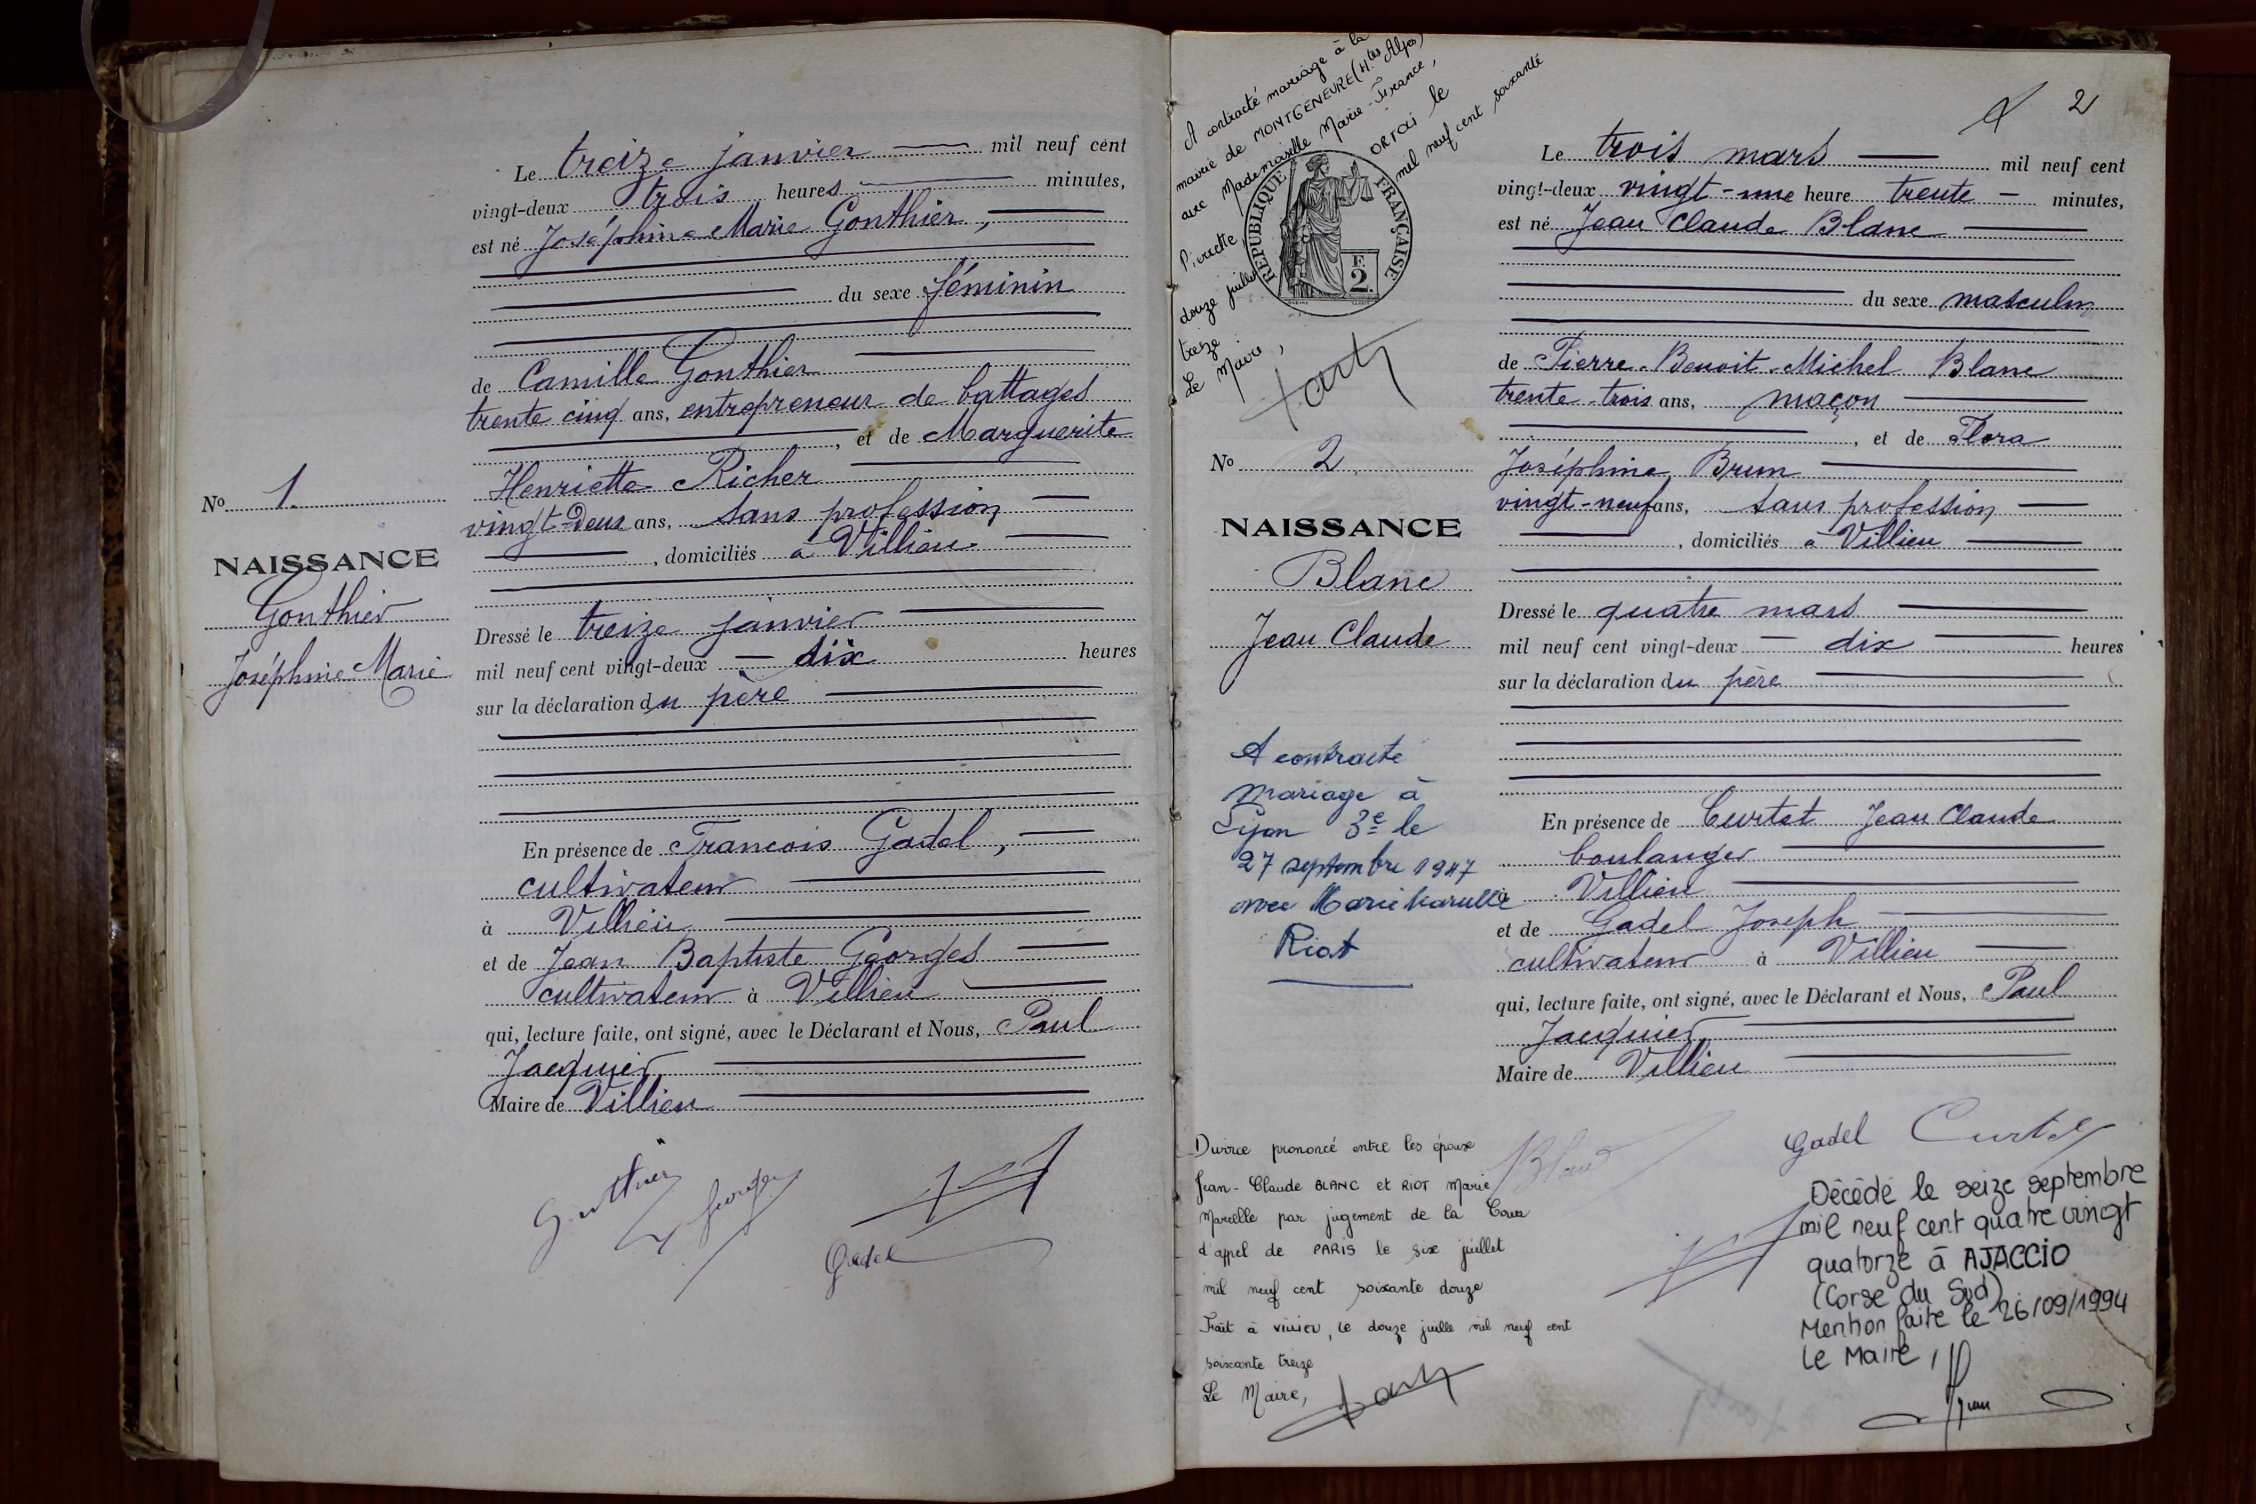 Le treize janvier mil neuf cent
vingt-deux trois heures minutes,
est né Joséphine Marie Gonthier,
du sexe féminin
de Camille Gonthier
trente cinq ans, entrepreneur de battages
, et de Marguerite
Henriette Richer
vingt-Deux ans, sans profession
, domiciliés à Villieu
No 1.
NAISSANCE
Gonthier
Joséphine Marie
Dressé le treize janvier
mil neuf cent vingt-deux dix heures
sur la déclaration du père
En présence de Francois Gadel,
cultivateur
à Villieu
et de Jean Baptiste Georges
cultivateur à Villieu
qui, lecture faite, ont signé, avec le Déclarant et Nous, Paul
Jacquier
Maire de Villieu
Gonthier
Georges
Gadel
A contracté mariage à la
mairie de MONTGENEVRE (Htes Alpes)
avec Mademoiselle Marie-France,
Pierrette ORTOLI le
douze juillet mil neuf cent soixante
treize
Le Maire,
REPUBLIQUE FRANÇAISE
F.
2.
No 2
NAISSANCE
Blanc
Jean Claude
A contracté
mariage à
Lyon 3e le
27 septembre 1947
avec Marie Marcelle
Riot
2
Le trois mars mil neuf cent
vingt-deux vingt-une heure trente minutes,
est né Jean Claude Blanc
du sexe masculin
de Pierre Benoit Michel Blanc
trente-trois ans, maçon
, et de Flora
Joséphine Brun
vingt-neuf ans, sans profession
, domiciliés à Villieu
Dressé le quatre mars
mil neuf cent vingt-deux dix heures
sur la déclaration du père
En présence de Curtet Jean Claude
boulanger
à Villieu
et de Gadel Joseph
cultivateur à Villieu
qui, lecture faite, ont signé, avec le Déclarant et Nous, Paul
Jacquier
Maire de Villieu
Blanc
Gadel Curtet
Divorce prononcé entre les époux
Jean-Claude BLANC et RIOT Marie
Marcelle par jugement de la Cour
d'appel de PARIS le six juillet
mil neuf cent soixante douze
Fait à VILLIEU, le douze juillet mil neuf cent
soixante treize
Le Maire,
Décédé le seize septembre
mil neuf cent quatre vingt
quatorze à AJACCIO
(Corse du Sud)
Mention faite le 26/09/1994
Le Maire,